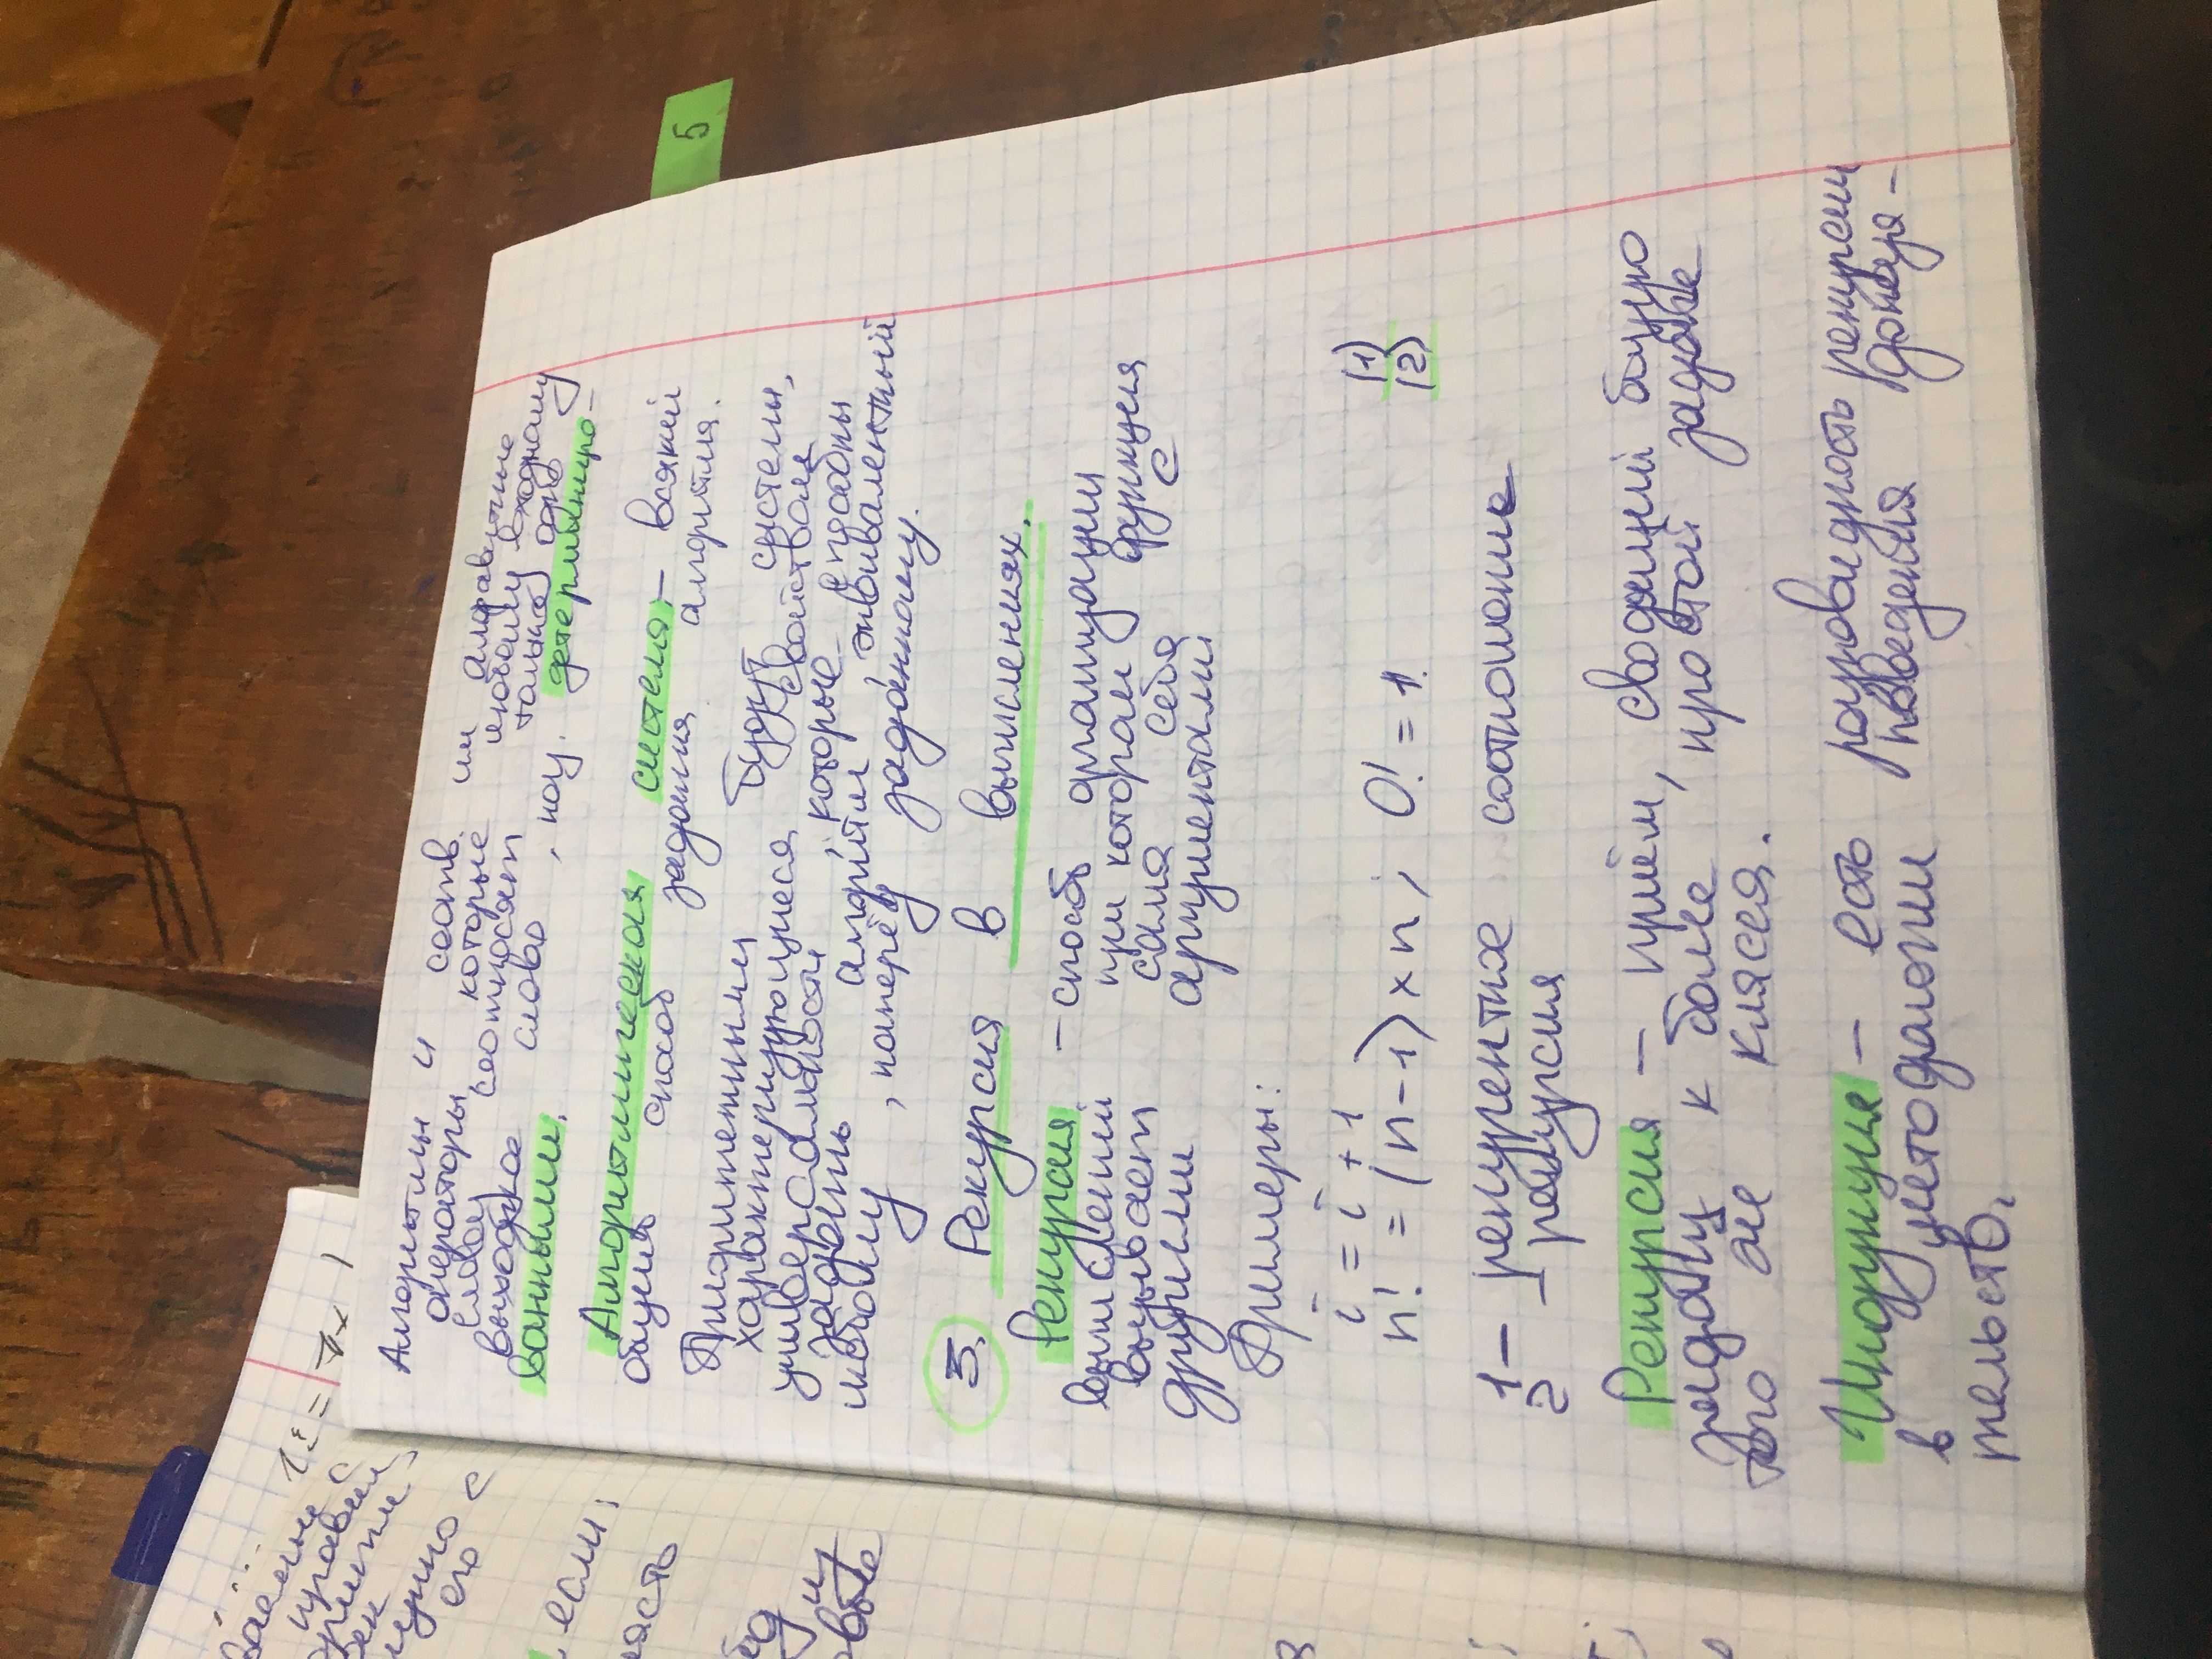 ваемые с
1:= 1x
правил
его
, если:
ясть
из
овые
Алгоритмы и соотв. им алфавитные
операторы, которые любому входному
слову соотносят только одно
выходное слово, наз. детерминиро-
ванными.
Алгоритмическая система - всякий
общий способ задания алгоритма.
Приоритетными будут системы,
характеризующиеся свойствам
универсальности, которые способны
задать алгоритм, эквивалентный
любому, наперёд заданному.
5
3. Рекурсия в вычислениях.
Рекурсия - способ организации
вычислений при котором функция
вызывает сама себя с
другими аргументами
Примеры:
i = i + 1 (1)
n! = (n-1) x n; 0! = 1. (2)
1 - рекурентное соотношение
2 - рекурсия
Рекурсия - приём, сводящий общую
задачу к более простой задаче
того же класса.
Индукция - есть разновидность рекурсии
в методологии поведения доказа-
тельств.